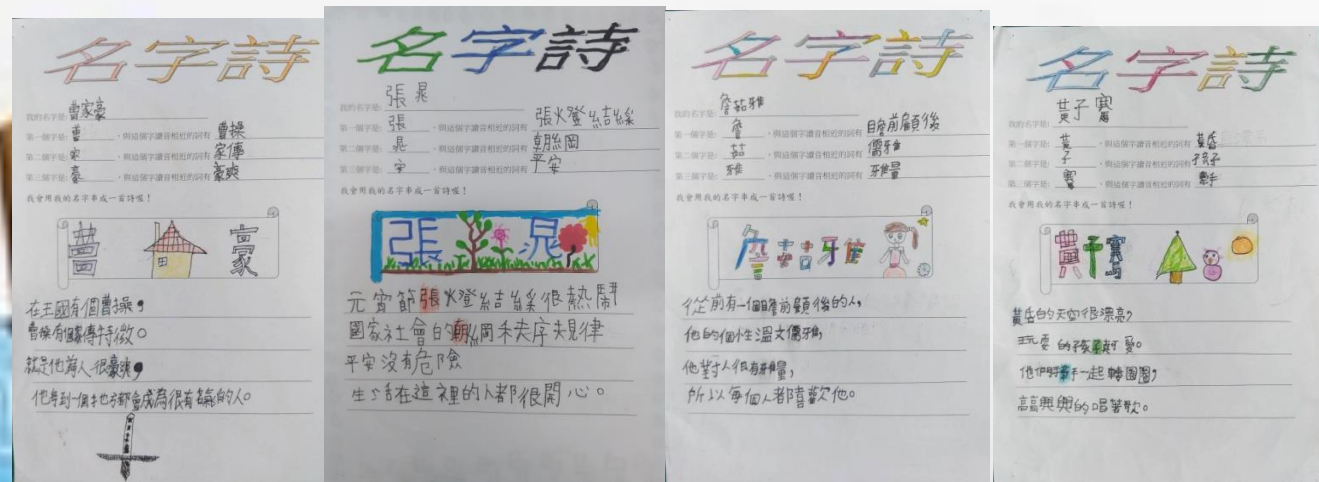 名字詩
我的名字是: 曾家豪
第一個字是: 曹 ,與這個字讀音相近的詞有 曹操
第二個字是: 家 ,與這個字讀音相近的詞有 家傳
第三個字是: 豪 ,與這個字讀音相近的詞有 豪爽
我會用我的名字串成一首詩喔!
豪
在王國有個曹操,
曹操有個家傳特徵。
就是他為人很豪爽,
他每到一個地方都會成為很有名氣的人。
名字詩
我的名字是: 張晁
第一個字是: 張 ,與這個字讀音相近的詞有 張火燈結綵
第二個字是: 晁 ,與這個字讀音相近的詞有 朝綱
第三個字是: 安 ,與這個字讀音相近的詞有 平安
我會用我的名字串成一首詩喔!
張 晁
元宵節張火燈結綵很熱鬧
國家社會的朝綱秩序規律
平安沒有危險
生活在這裡的人都很開心。
名字詩
我的名字是: 詹茹雅
第一個字是: 詹 ,與這個字讀音相近的詞有 瞻前顧後
第二個字是: 茹 ,與這個字讀音相近的詞有 儒雅
第三個字是: 雅 ,與這個字讀音相近的詞有 雅量
我會用我的名字串成一首詩喔!
詹茹雅
從前有一個瞻前顧後的人,
他的個性溫文儒雅,
他對人很有雅量,
所以每個人都喜歡他。
名字詩
我的名字是: 黃子騫
第一個字是: 黃 ,與這個字讀音相近的詞有 黃昏
第二個字是: 子 ,與這個字讀音相近的詞有 孩子
第三個字是: 騫 ,與這個字讀音相近的詞有 牽手
我會用我的名字串成一首詩喔!
黃子騫
黃昏的天空很漂亮,
玩耍的孩子真可愛。
他們牽手一起轉圈圈,
高高興興的唱著歌。